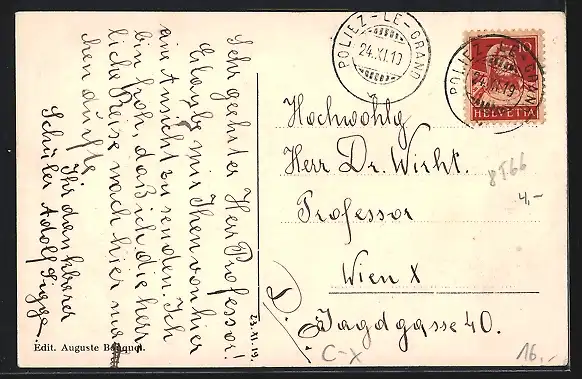 Sehr geehrter Herr Professor!
Erlaube mir Ihnen von hier
eine Ansicht zu senden. Ich
bin froh, daß ich die herr
liche Reise nach hier ma
chen durfte
Ihr dankbarer
Schüler Adolf
23.XI.19.
Edit. Auguste
POLIEZ-LE-GRAND
24.XI.19
POLIEZ-LE-GRAND
24.XI.19
10
HELVETIA
Hochwohlg
Herr Dr. Wirkt.
Professor
Wien X
Jagdgasse 40.
4,-
C-X
16,-